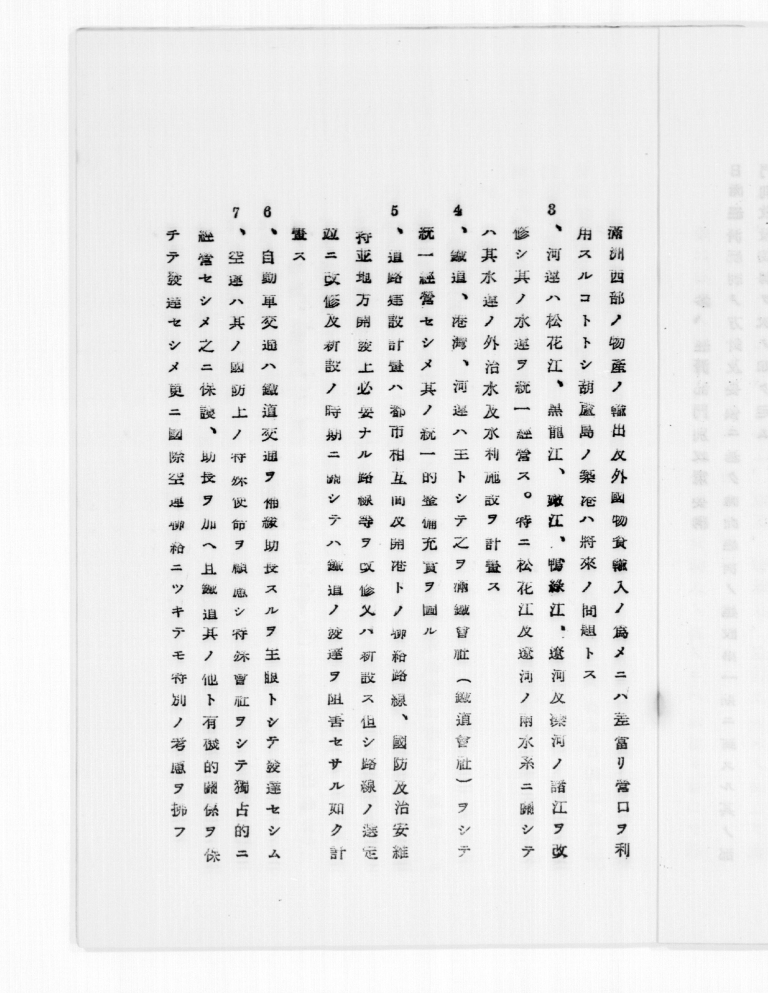 滿洲西部ノ物產ノ輸出及外國物貨輸入ノ爲メニハ差當リ營口ヲ利
用スルコトトシ葫蘆島ノ築港ハ將來ノ問題トス
3、河運ハ松花江、黑龍江、嫩江、鴨綠江、遼河及渾河ノ諸江ヲ改
修シ其ノ水運ヲ統一經營ス。特ニ松花江及遼河ノ兩水系ニ關シテ
ハ其水運ノ外治水及水利施設ヲ計畫ス
4、鐵道、港灣、河運ハ主トシテ之ヲ滿鐵會社（鐵道會社）ヲシテ
統一經營セシメ其ノ統一的整備充實ヲ圖ル
5、道路建設計畫ハ都市相互間及開港トノ聯絡路線、國防及治安維
持並地方開發上必要ナル路線等ヲ改修又ハ新設ス但シ路線ノ選定
竝ニ改修及新設ノ時期ニ關シテハ鐵道ノ發達ヲ阻害セサル如ク計
畫ス
6、自動車交通ハ鐵道交通ヲ補綴助長スルヲ主眼トシテ發達セシム
7、空運ハ其ノ國防上ノ特殊使命ヲ顧慮シ特殊會社ヲシテ獨占的ニ
經營セシメ之ニ保護、助長ヲ加ヘ且鐵道其ノ他ト有機的關係ヲ保
チテ發達セシメ更ニ國際空運聯絡ニツキテモ特別ノ考慮ヲ拂フ